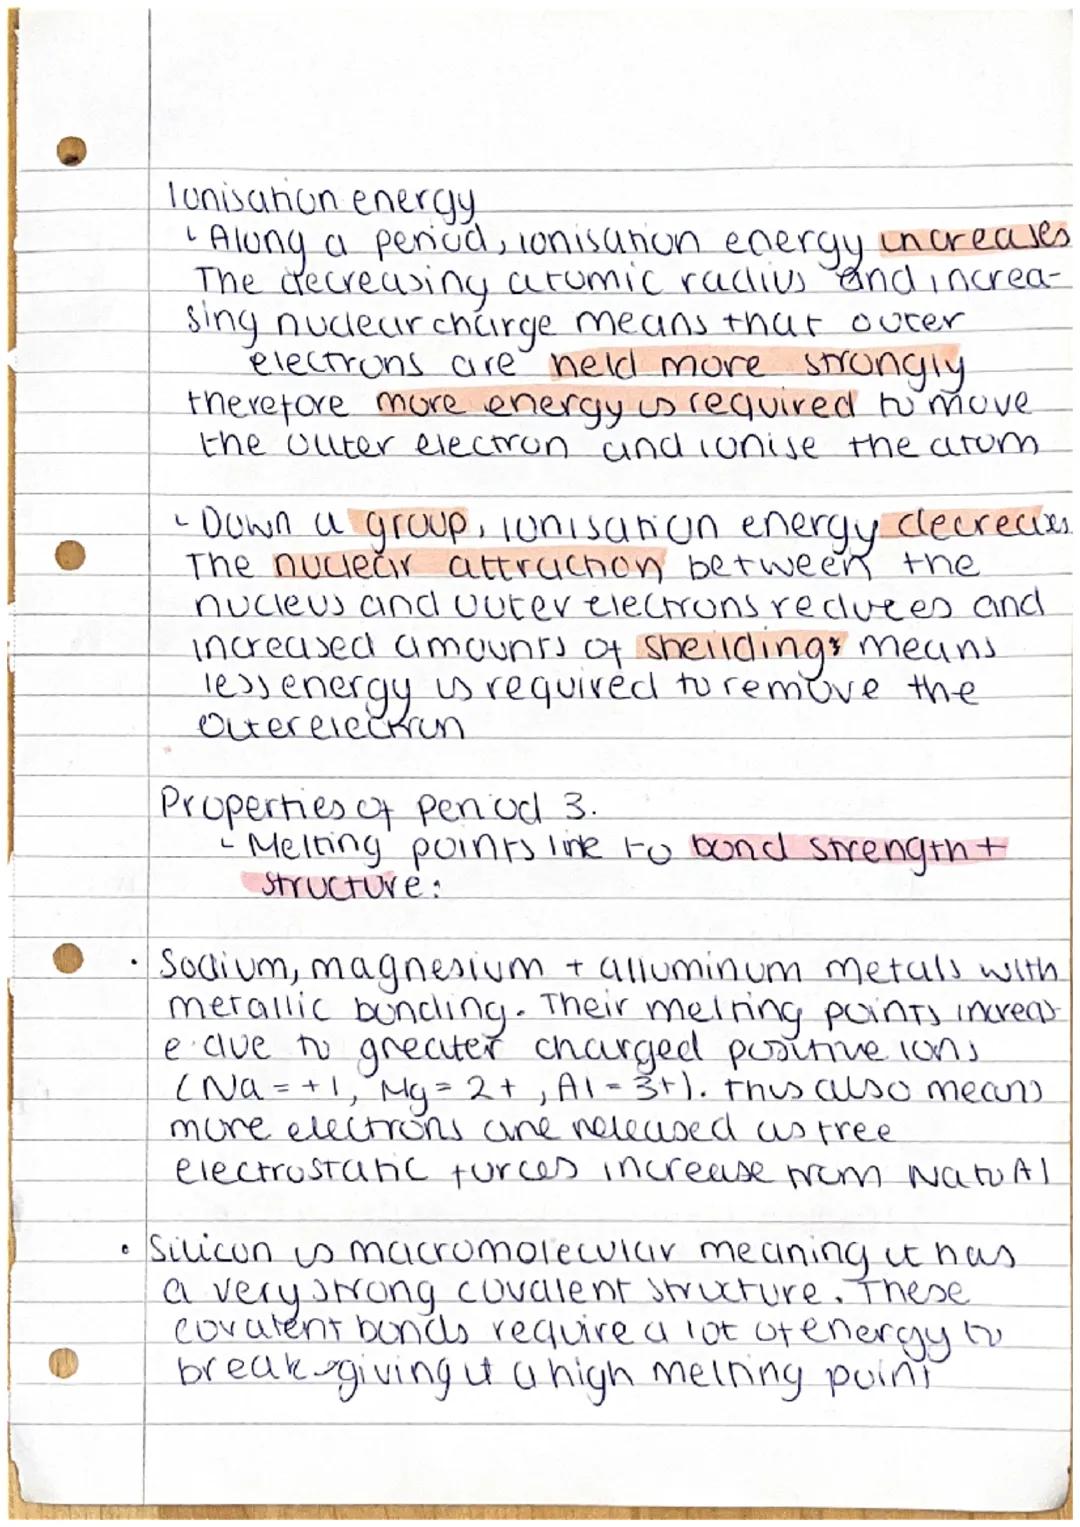 Ionisation energy
Along a period, ionisation energy increases
The decreasing atomic radius and increa-
sing nuclear charge means that outer
electrons are held more strongly
therefore more energy is required to move
the outer electron and ionise the atom
Down a group, ionisation energy decreases.
The nuclear attraction between the
nucleus and outer electrons reduces and
increased amounts of sheilding means
less energy is required to remove the
outer electron
Properties of period 3.
Melting points link to bond strength +
structure:
• Sodium, magnesium + alluminum metals with
metallic bonding. Their melting points increas-
e due to greater charged positive ions
(Na = +1, Mg = 2+, Al = 3+). This also means
more electrons are released as free
electrostatic forces increase from Na to Al
• Silicon is macromolecular meaning it has
a very strong covalent structure. These
covalent bonds require a lot of energy to
break giving it a high melting point